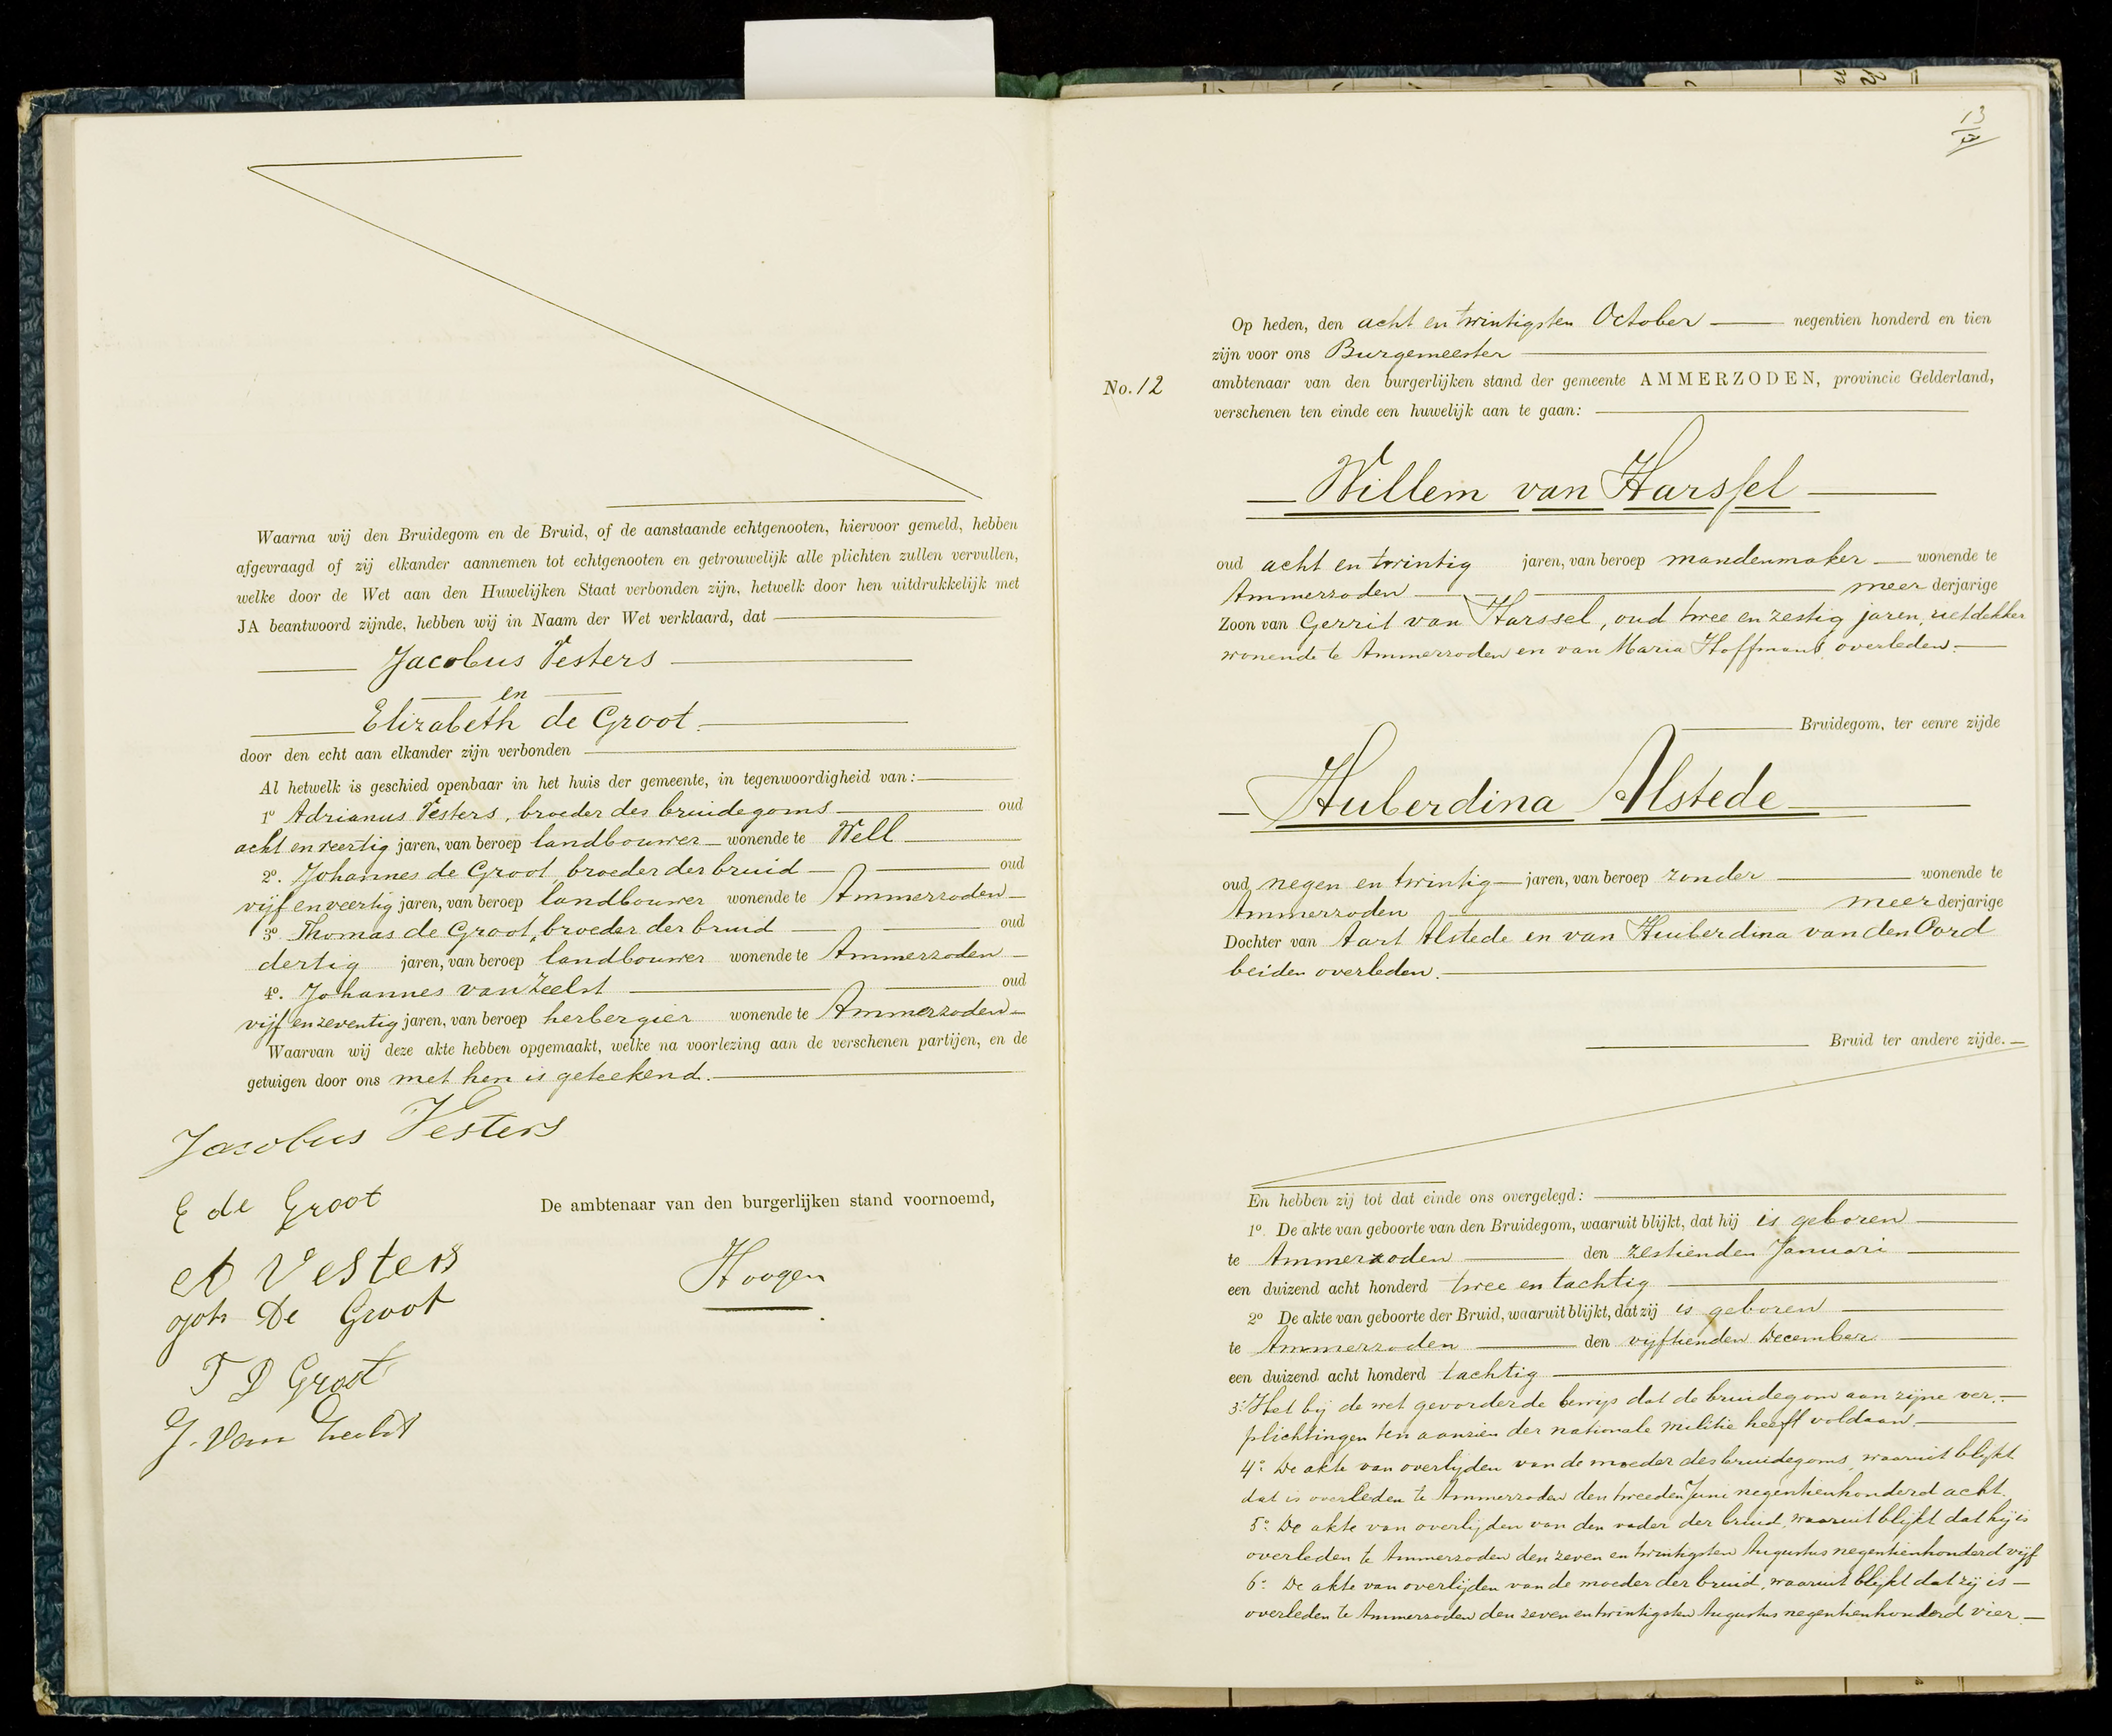 Waarna wij den Bruidegom en de Bruid, of de aanstaande echtgenooten, hiervoor gemeld, hebben
afgevraagd of zij elkander aannemen tot echtgenooten en getrouwelijk alle plichten zullen vervullen,
welke door de Wet aan den Huwelijken Staat verbonden zijn, hetwelk door hen uitdrukkelijk met
JA beantwoord zijnde, hebben wij in Naam der Wet verklaard, dat
Jacobus Vesters
en
Elizabeth de Groot.
door den echt aan elkander zijn verbonden
Al hetwelk is geschied openbaar in het huis der gemeente, in tegenwoordigheid van:
1º Adrianus Vesters, broeder des bruidegoms oud
acht en veertig jaren, van beroep landbouwer wonende te Well
2º. Johannes de Groot, broeder der bruid oud
vijf en veertig jaren, van beroep landbouwer wonende te Ammerzoden
3º. Thomas de Groot, broeder der bruid oud
dertig jaren, van beroep landbouwer wonende te Ammerzoden
4º. Johannes van Zeelst oud
vijf en zeventig jaren, van beroep herbergier wonende te Ammerzoden
Waarvan wij deze akte hebben opgemaakt, welke na voorlezing aan de verschenen partijen, en de
getuigen door ons met hen is geteekend.
Jacobus Vesters
E de Groot
De ambtenaar van den burgerlijken stand voornoemd,
A Vesters
Hoogen
Joh De Groot
T D Groot
J. van
13
No. 12
Op heden, den acht en twintigsten October negentien honderd en tien
zijn voor ons Burgemeester
ambtenaar van den burgerlijken stand der gemeente AMMERZODEN, provincie Gelderland,
verschenen ten einde een huwelijk aan te gaan:
Willem van Harssel
oud acht en twintig jaren, van beroep mandenmaker wonende te
Ammerzoden meer derjarige
Zoon van Gerrit van Harssel, oud twee en zestig jaren, rietdekker
wonende te Ammerzoden en van Maria Hoffmans overleden.
Bruidegom, ter eenre zijde
Huberdina Alstede
oud negen en twintig jaren, van beroep zonder wonende te
Ammerzoden meer derjarige
Dochter van Aart Alstede en van Huiberdina van den Oord
beiden overleden.
Bruid ter andere zijde.
En hebben zij tot dat einde ons overgelegd:
1º De akte van geboorte van den Bruidegom, waaruit blijkt, dat hij is geboren
te Ammerzoden den zestienden Januari
een duizend acht honderd twee en tachtig
2º De akte van geboorte der Bruid, waaruit blijkt, dat zij is geboren
te Ammerzoden den vijftienden December
een duizend acht honderd tachtig
3º. Het bij de wet gevorderde bewijs dat de bruidegom aan zijne ver-
plichtingen ten aanzien der nationale militie heeft voldaan.
4º. De akte van overlijden van de moeder des bruidegoms, waaruit blijkt
dat is overleden te Ammerzoden den tweeden Juni negentienhonderd acht.
5º. De akte van overlijden van den vader der bruid, waaruit blijkt dat hij is
overleden te Ammerzoden den zeven en twintigsten Augustus negentienhonderd vijf
6º. De akte van overlijden van de moeder der bruid, waaruit blijkt dat zij is
overleden te Ammerzoden den zeven en twintigsten Augustus negentienhonderd vier